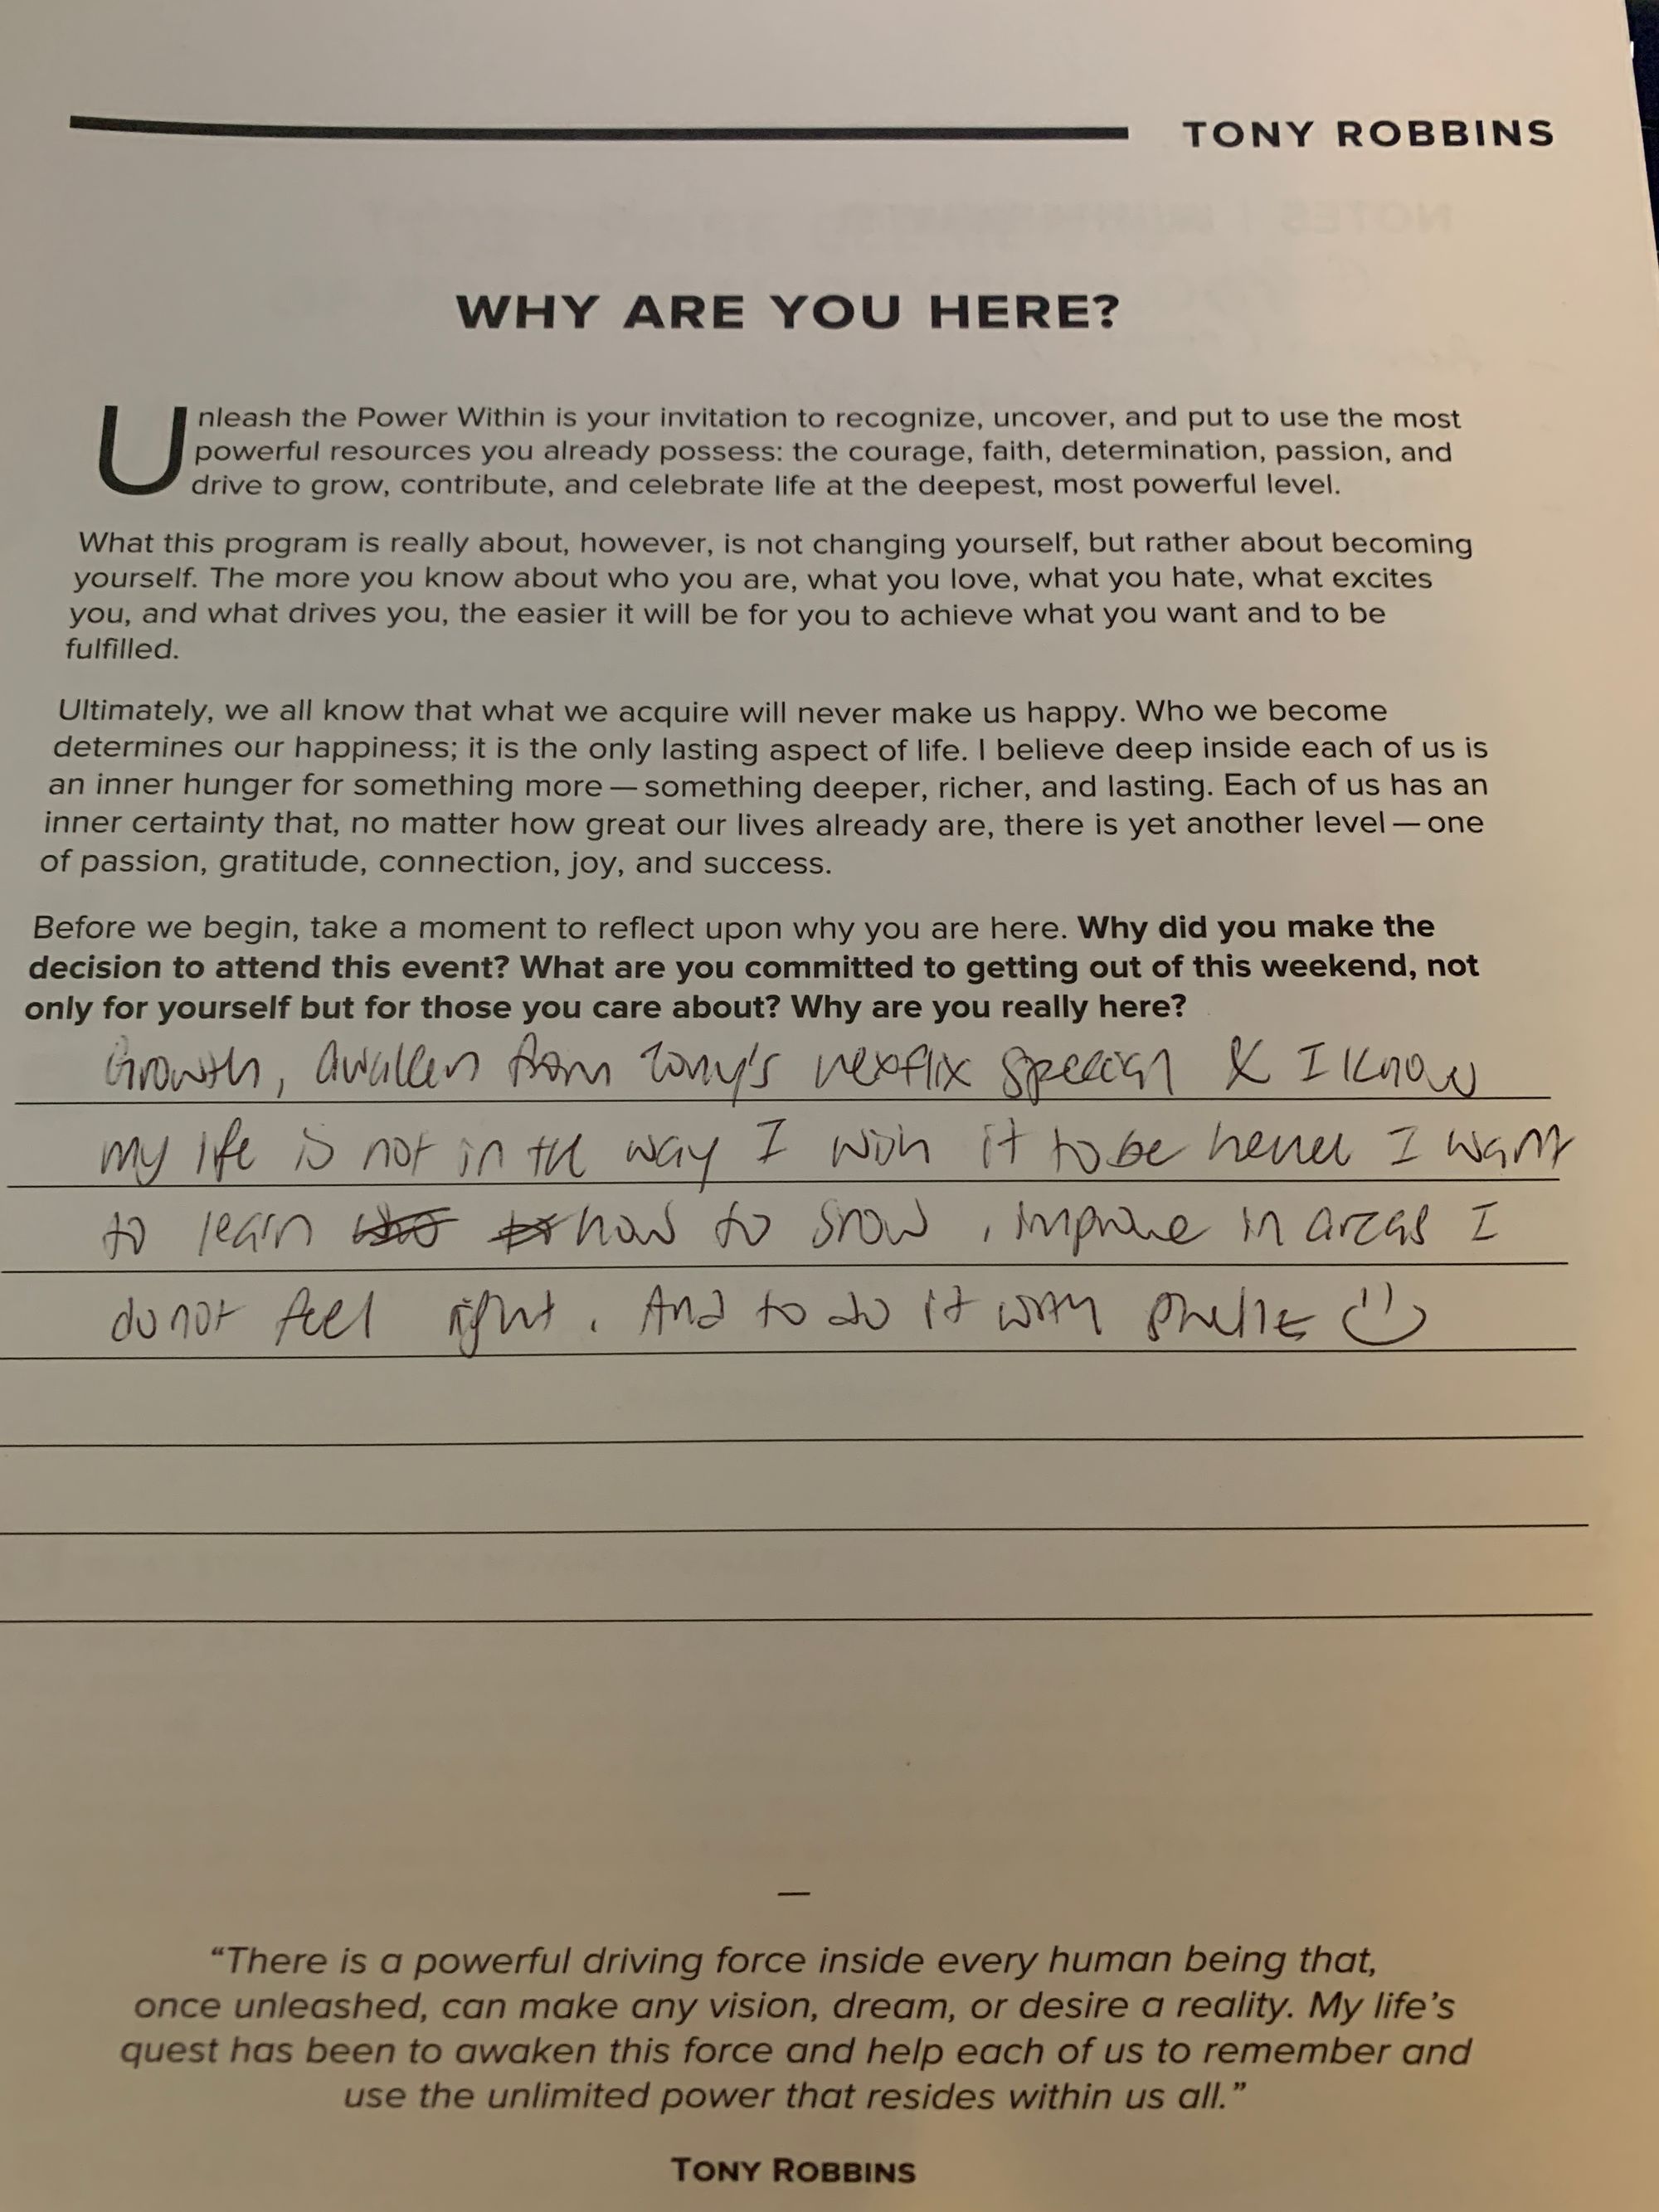 TONY ROBBINS
WHY ARE YOU HERE?
Unleash the Power Within is your invitation to recognize, uncover, and put to use the most
powerful resources you already possess: the courage, faith, determination, passion, and
drive to grow, contribute, and celebrate life at the deepest, most powerful level.
What this program is really about, however, is not changing yourself, but rather about becoming
yourself. The more you know about who you are, what you love, what you hate, what excites
you, and what drives you, the easier it will be for you to achieve what you want and to be
fulfilled.
Ultimately, we all know that what we acquire will never make us happy. Who we become
determines our happiness; it is the only lasting aspect of life. I believe deep inside each of us is
an inner hunger for something more — something deeper, richer, and lasting. Each of us has an
inner certainty that, no matter how great our lives already are, there is yet another level — one
of passion, gratitude, connection, joy, and success.
Before we begin, take a moment to reflect upon why you are here. Why did you make the
decision to attend this event? What are you committed to getting out of this weekend, not
only for yourself but for those you care about? Why are you really here?
Growth, awaken from Tony's speech & I know
my life is not in the way I wish it to be hence I want
to learn how to grow, improve in areas I
do not feel right. And to do it with
"There is a powerful driving force inside every human being that,
once unleashed, can make any vision, dream, or desire a reality. My life's
quest has been to awaken this force and help each of us to remember and
use the unlimited power that resides within us all."
TONY ROBBINS